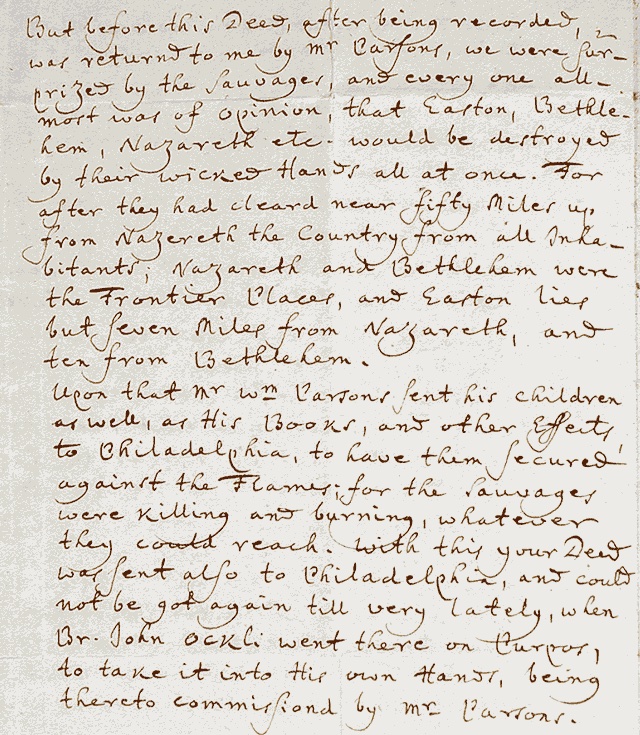 But before this Deed, after being recorded,
was returnd to me by mr Parsons, we were sur-
prized by the Sauvages, and every one all-
most was of opinion, that Easton, Bethle-
hem, Nazareth etc. would be destroyed
by their wicked Hands all at once. For
after they had cleard near fifty Miles up
from Nazereth the Country from all Inha-
bitants; Nazareth and Bethlehem were
the Frontier Places, and Easton lies
but seven Miles from Nazareth, and
ten from Bethlehem.
Upon that Mr Wm Parsons sent his children
as well, as His Books, and other Effects,
to Philadelphia, to have them secured
against the Flames; for the Sauvages
were killing and burning, whatever
they could reach. With this your Deed
was sent also to Philadelphia, and could
not be got again till very lately, when
Br. John Ockli went there on Purpos,
to take it into His own Hands, being
thereto commissiond by mr Parsons.